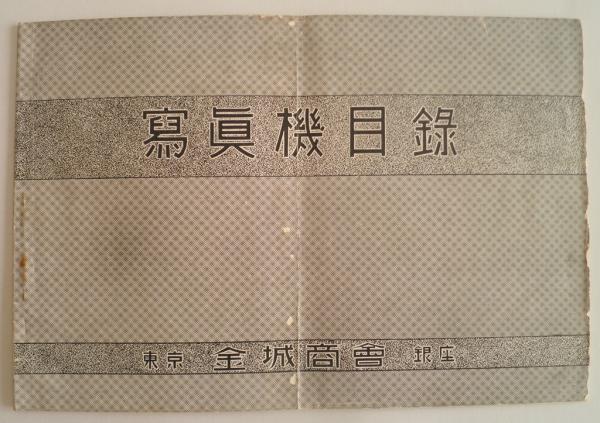 寫眞機目錄
東京 金城商會 銀座